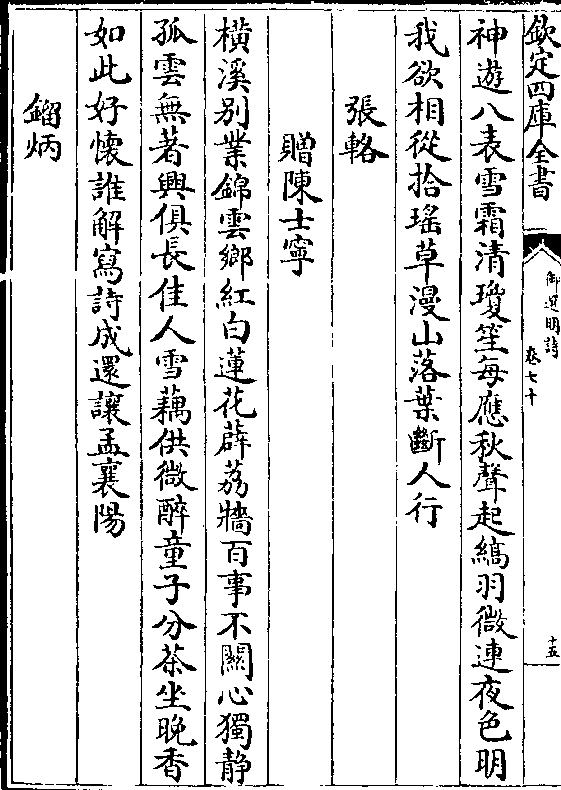 欽定四庫全書
御選明詩
卷七十
十五
神遊八表雪霜清瓊笙每應秋聲起縞羽微連夜色明
我欲相從拾瑤草漫山落葉斷人行
張輅
贈陳士寧
橫溪别業錦雲鄉紅白蓮花薜荔牆百事不關心獨静
孤雲無著興俱長佳人雪藕供微醉童子分茶坐晚香
如此好懐誰解寫詩成還讓孟襄陽
鎦炳